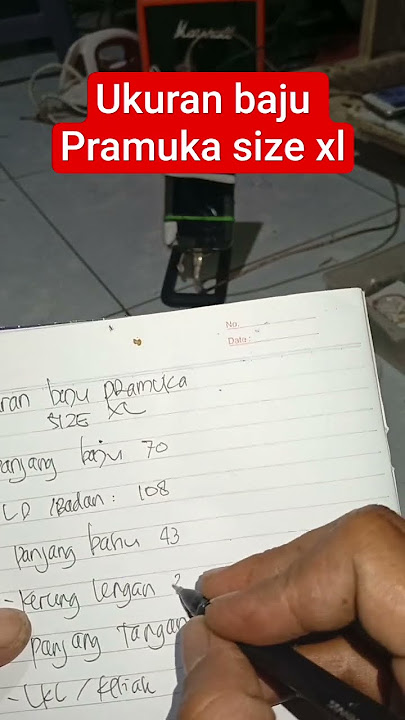 Marshall
Ukuran baju
Pramuka size xl
No.
Date :
ran baju pramuka
SIZE XL
panjang baju 70
LD /Badan : 108
panjang bahu 43
- kerung lengan
panjang tangan
- LKL / keliak